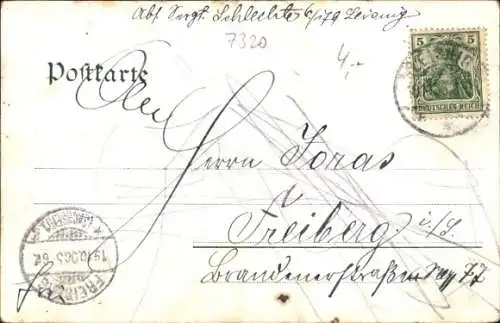 Abs. Sergt. Schlechte 6/179 Leisnig
7320
4,-
Postkarte
5 5
DEUTSCHES REICH
An
Herrn Joras
Freiberg i/S.
Brandenerstraße
FREIBERG